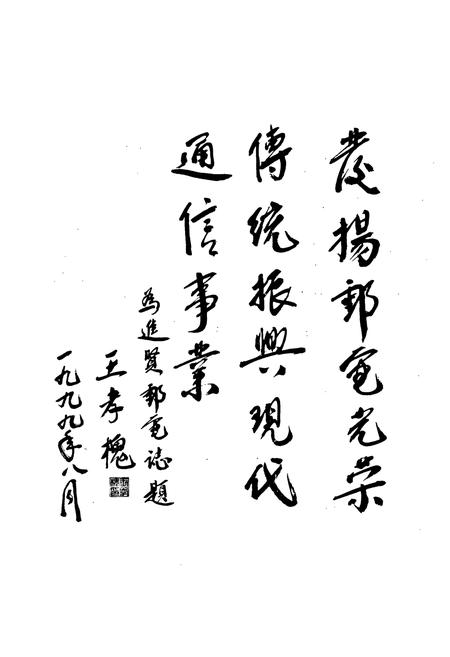 發揚郵電光荣
傳統振興現代
通信事業
為進賢郵電誌題
王孝槐
一九九九年八月